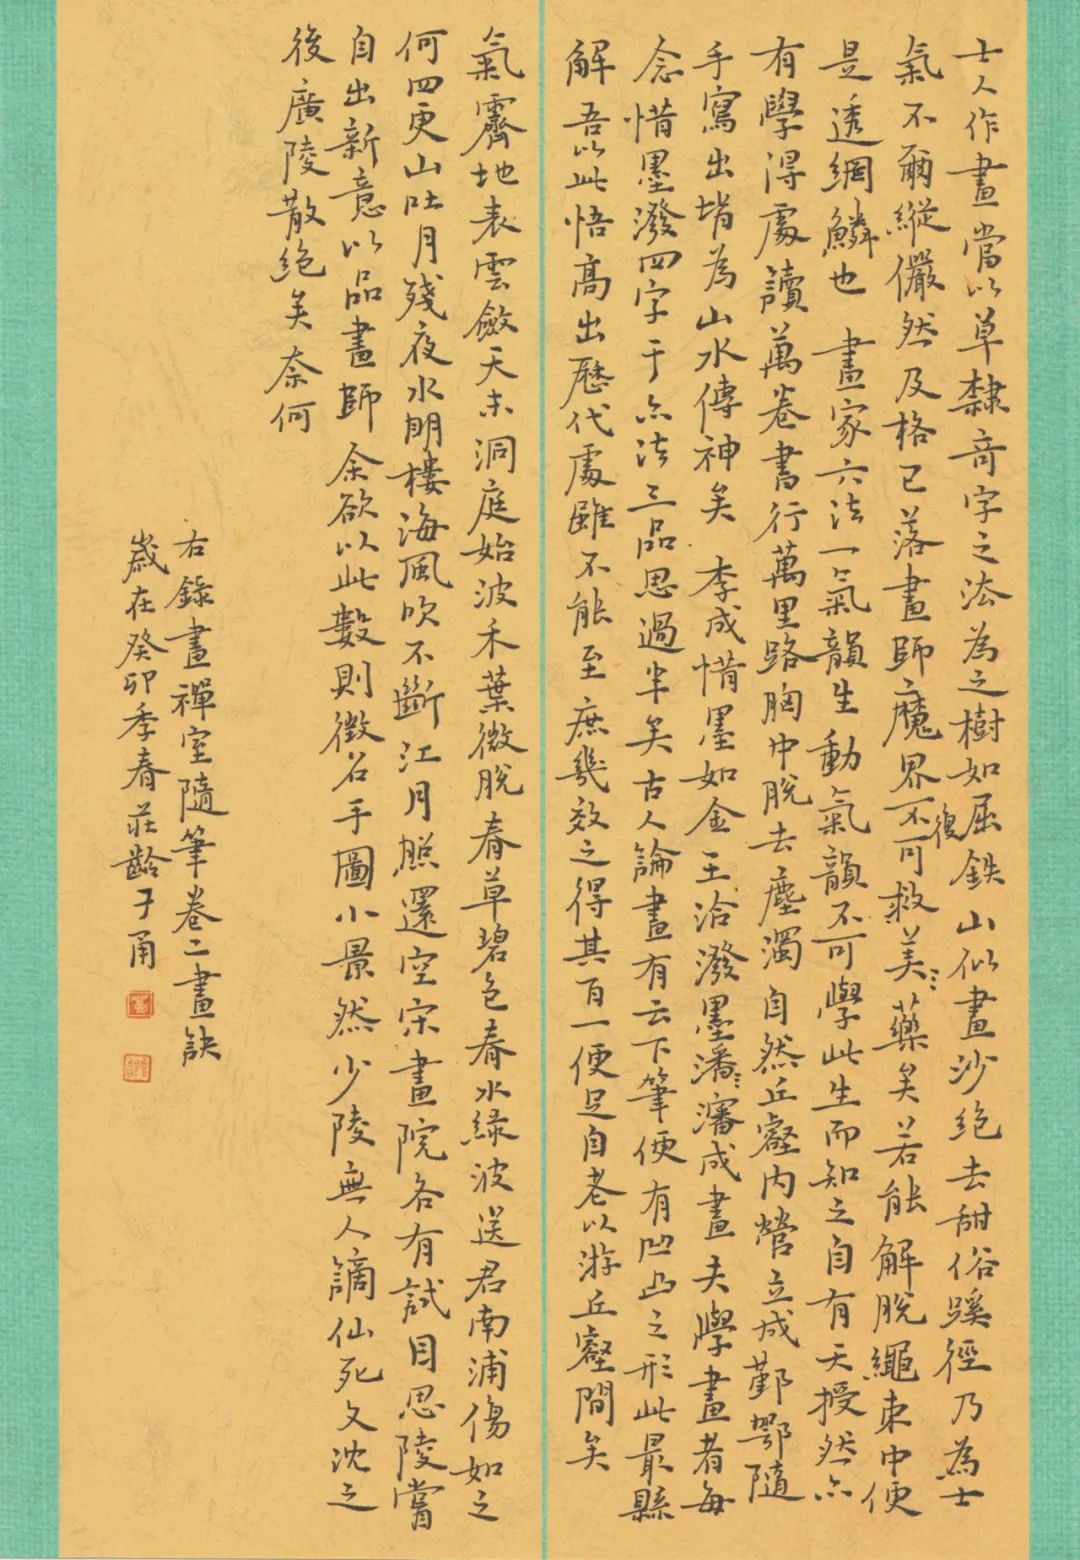 士人作畫當以草隸奇字之法為之樹如屈鉄山似畫沙絕去甜俗蹊徑乃為士
氣不爾縱儼然及格已落畫師魔界不可復救美藥矣若能解脫繩束中便
是透網鱗也 畫家六法一氣韻生動氣韻不可學此生而知之自有天授然亦
有學得處讀萬卷書行萬里路胸中脫去塵濁自然丘壑內營立成鄞鄂隨
手寫出皆為山水傳神矣 李成惜墨如金王洽潑墨潘瀋成畫夫學畫者每
念惜墨潑四字于六法三品思過半矣古人論畫有云下筆便有凹凸之形此最縣
解吾以此悟高出歷代處雖不能至庶幾效之得其百一便足自老以游丘壑間矣
氣霽地表雲斂天末洞庭始波禾葉微脫春草碧色春水綠波送君南浦傷如之
何四更山吐月殘夜水明樓海風吹不斷江月照還空宋畫院各有試目思陵嘗
自出新意以品畫師 余欲以此數則徵名手圖小景然少陵無人謫仙死文沈之
後廣陵散絕矣奈何
右錄畫禪室隨筆卷二畫訣
歲在癸卯季春莊齡子甬